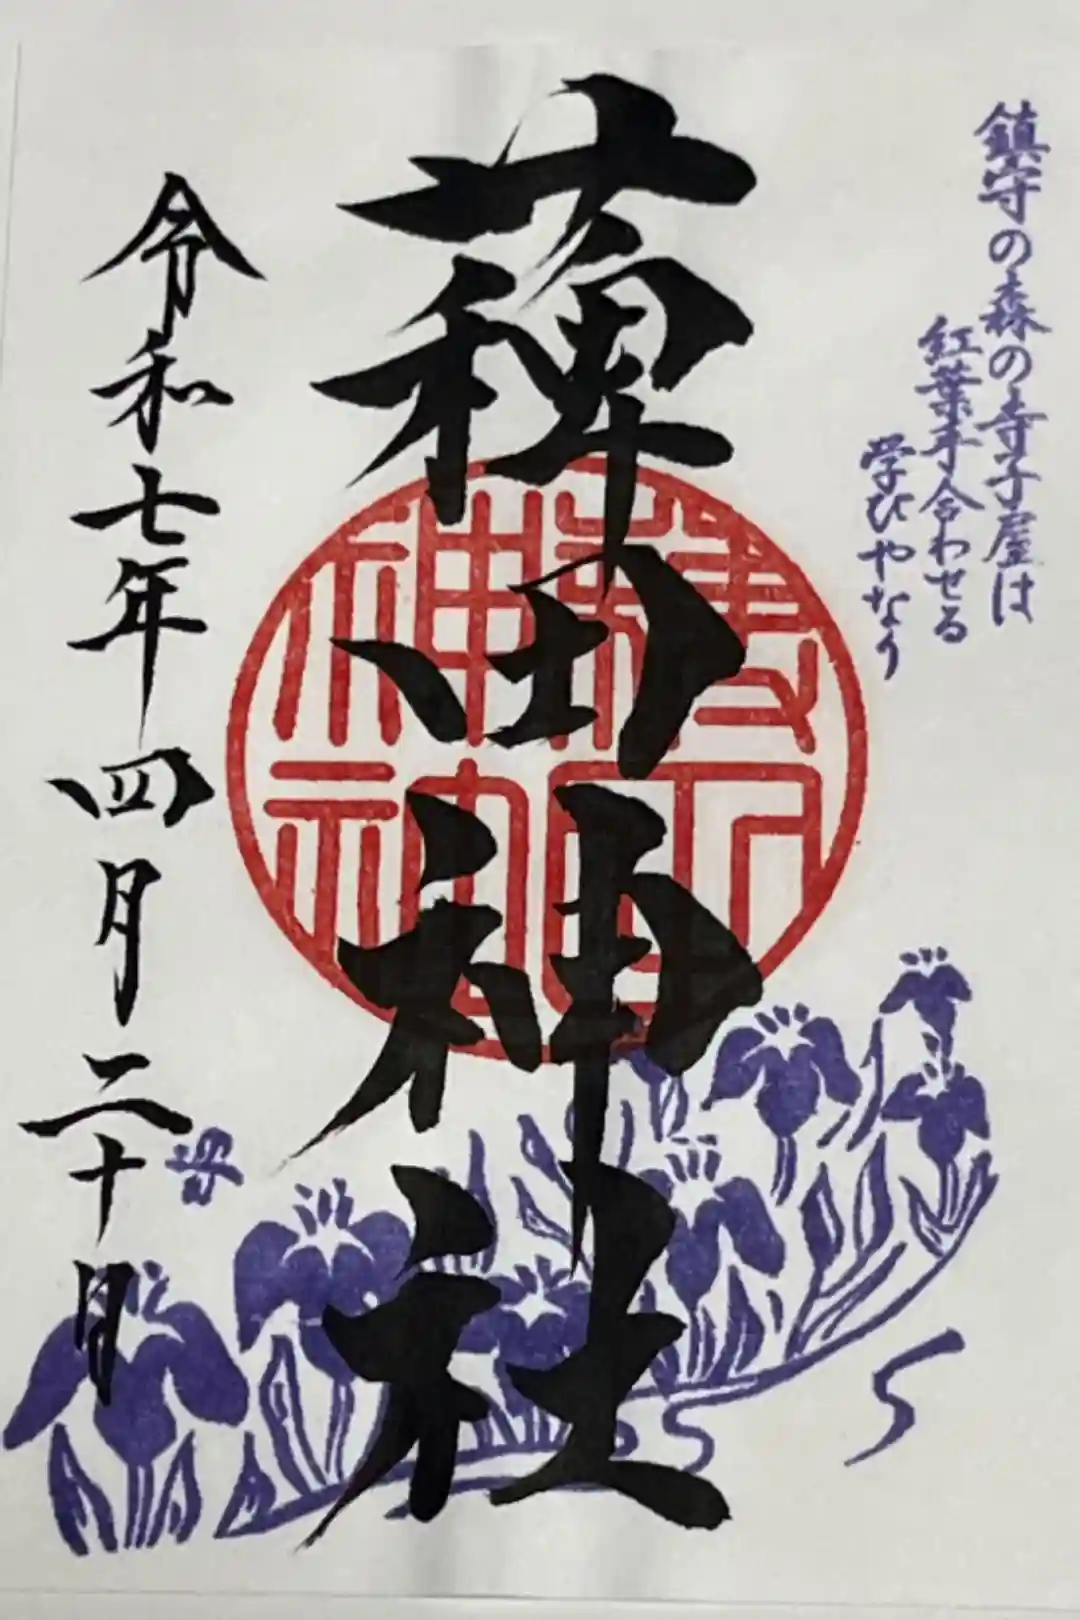 鎮守の森の寺子屋は
紅葉手合わせる
学びやなり
薭田神社
令和七年四月二十日